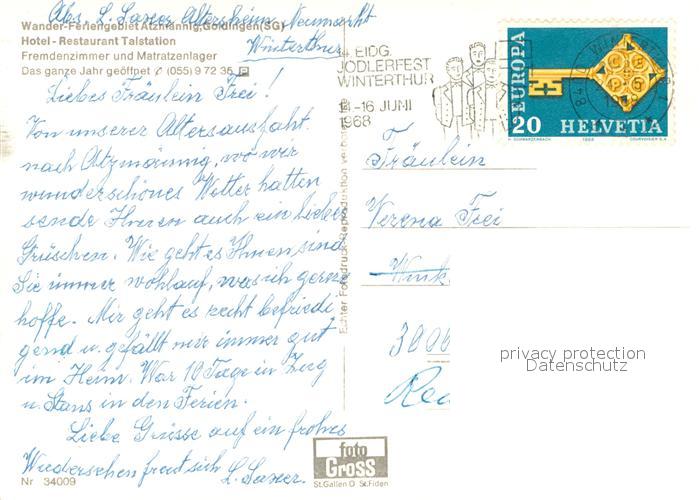 Abs. L. Saxer Altersheim Neumarkt
Winterthur
Wander-Feriengebiet Atzmännig, Goldingen (SG)
Hotel - Restaurant Talstation
Fremdenzimmer und Matratzenlager
Das ganze Jahr geöffnet (055) 9 72 35 P
Liebes Fräulein Frei!
Von unserer Altersausfahrt
nach Atzmännig, wo wir
wunderschönes Wetter hatten
sende Ihnen auch ein liebes
Grüschen. Wie geht es Ihnen sind
Sie immer wohlauf, was ich gerne
hoffe. Mir geht es recht befriedi
gend u. gefällt mir immer gut
im Heim. War 10 Tage in Zug
u. Stans in den Ferien.
Liebe Grüsse auf ein frohes
Wiedersehen freut sich L. Saxer.
Nr 34009
Echter Fotodruck Reproduktion verboten
foto
GROSS
St. Gallen O St. Fiden
EIDG.
JODLERFEST
WINTERTHUR
14-16 JUNI
1968
WINTERTHUR
EUROPA
CEPT
20 HELVETIA
H. SCHWARZENBACH 1968 COURVOISIER S.A.
Fräulein
Verena Frei
Wink
300
Re
privacy protection
Datenschutz